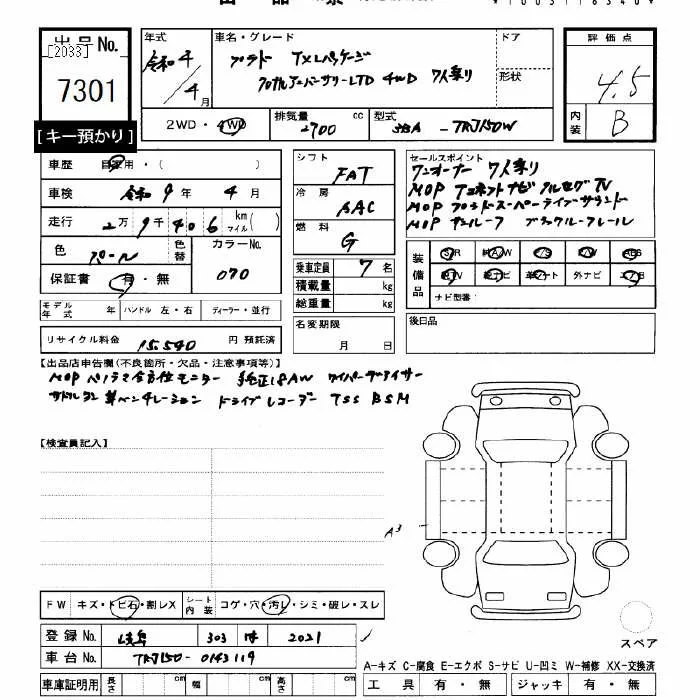 出品票
出品No.
[2033]
7301
[キー預かり]
年式
令和4年4月
車名・グレード
プラド TXLパッケージ
70thアニバーサリーLTD 4WD 7人乗り
ドア
形状
評価点
4.5
内装
B
2WD・4WD
排気量
2700 cc
型式
3BA-TRJ150W
車歴 自家用・( )
車検 令和9年4月
走行 2万9千406 km マイル( )
色 パール
色替
カラーNo.
070
保証書 有・無
シフト
FAT
冷房
AAC
燃料
G
乗車定員 7名
積載量 kg
総重量 kg
セールスポイント
ワンオーナー 7人乗り
MOP Tコネクトナビ フルセグTV
MOP プラドスーパーライブサウンド
MOP サンルーフ ブラックルーフレール
装備品
S/R 純A/W P/S P/W ABS
純TV 純ナビ 革シート 外ナビ エアB
ナビ型番
モデル年式 年
ハンドル 左・右
ディーラー・並行
名変期限
月 日
後日品
リサイクル料金 15,540 円 預託済
【出品店申告欄(不良箇所・欠品・注意事項等)】
MOP パノラマ全方位モニター 純正18AW ワイパーデアイサー
サドルタン革ベンチレーション ドライブレコーダー TSS BSM
【検査員記入】
A3
FW キズ・トビ石・割レX
シート内装 コゲ・穴・汚レ・シミ・破レ・スレ
登録No. 岐阜 303 2021
車台No. TRJ150-0143119
スペア
A-キズ C-腐食 E-エクボ S-サビ U-凹ミ W-補修 XX-交換済
車庫証明用 長さ cm 幅 cm 高さ cm
工具 有・無 ジャッキ 有・無